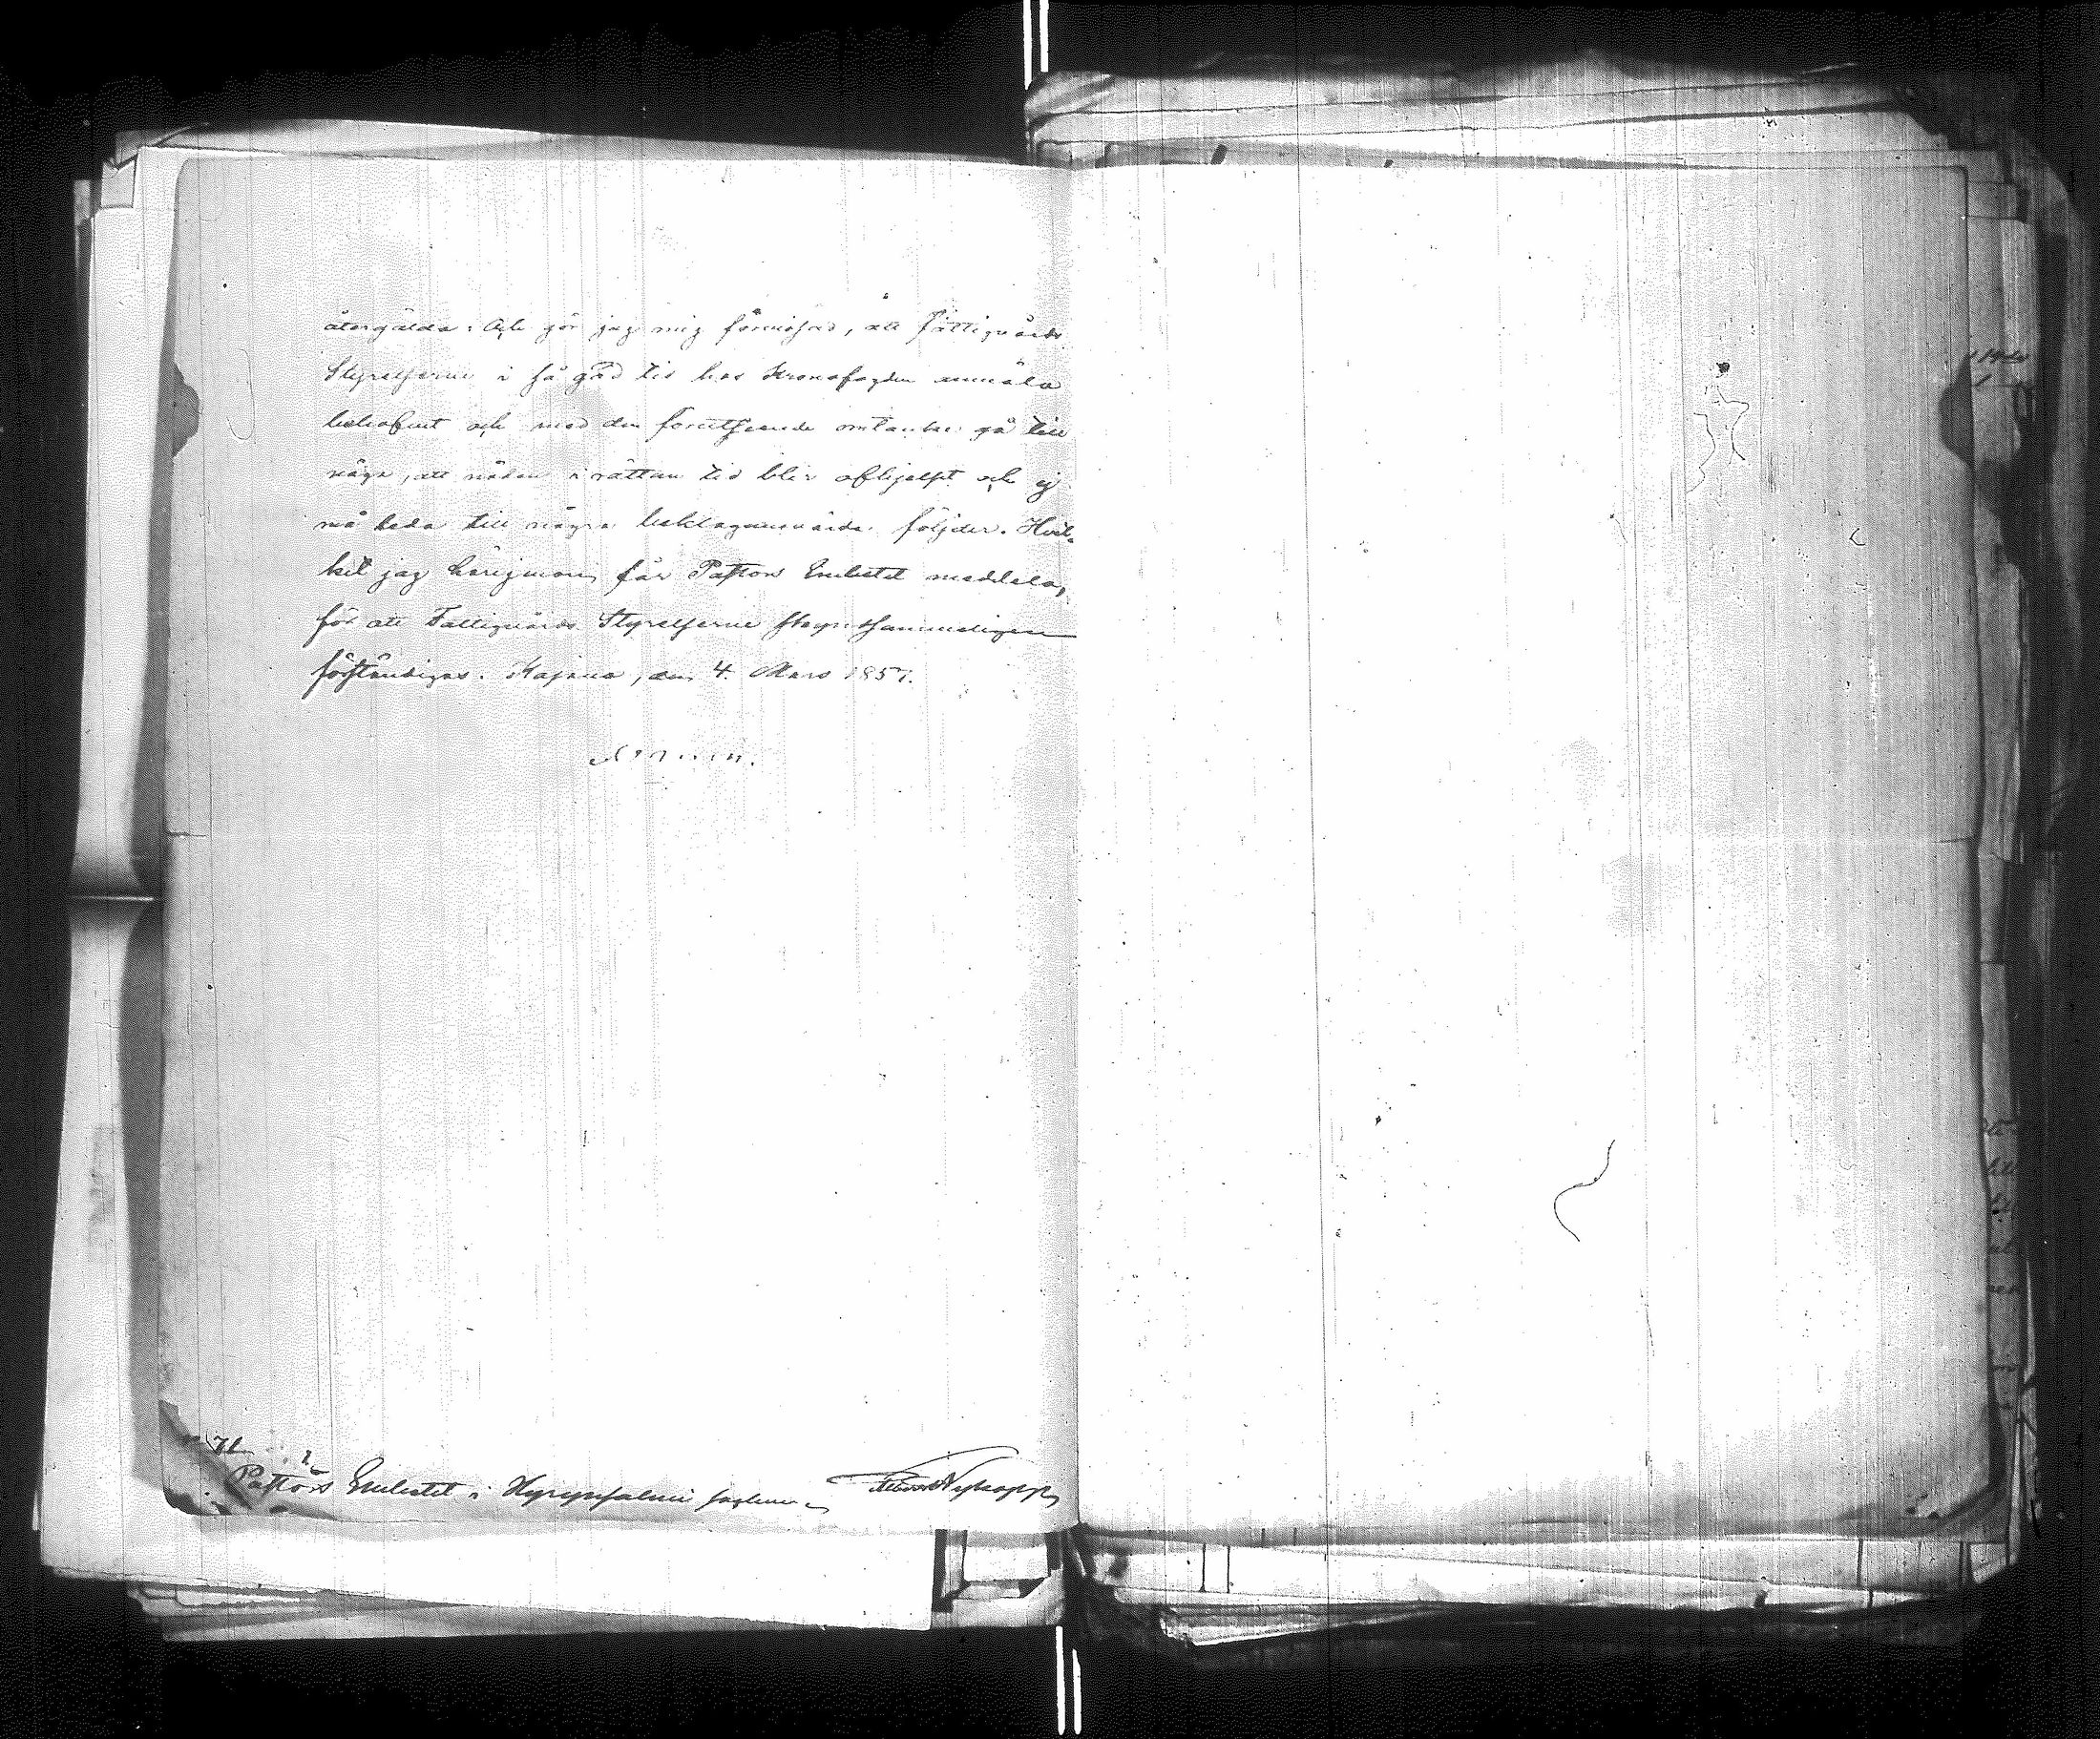 återgälda. Och gör jag mig förvissad, att Fattigvårds
Styrelserne i så god tid hos Kronofogden anmäla
behofvet och med den förutseende omtanke gå till
väga, att nöden i rättan tid blir afhjelpt och ej
må leda till några beklagansvärda följder. Hvil-
ket jag härigenom får Pastors Embetet meddela,
för att Fattigvårds Styrelserne ofbenhetsammeligen
förständigas. Kajana, den 4. Mars 1857.
Pastors Embetet i Hyrynsalmi socken